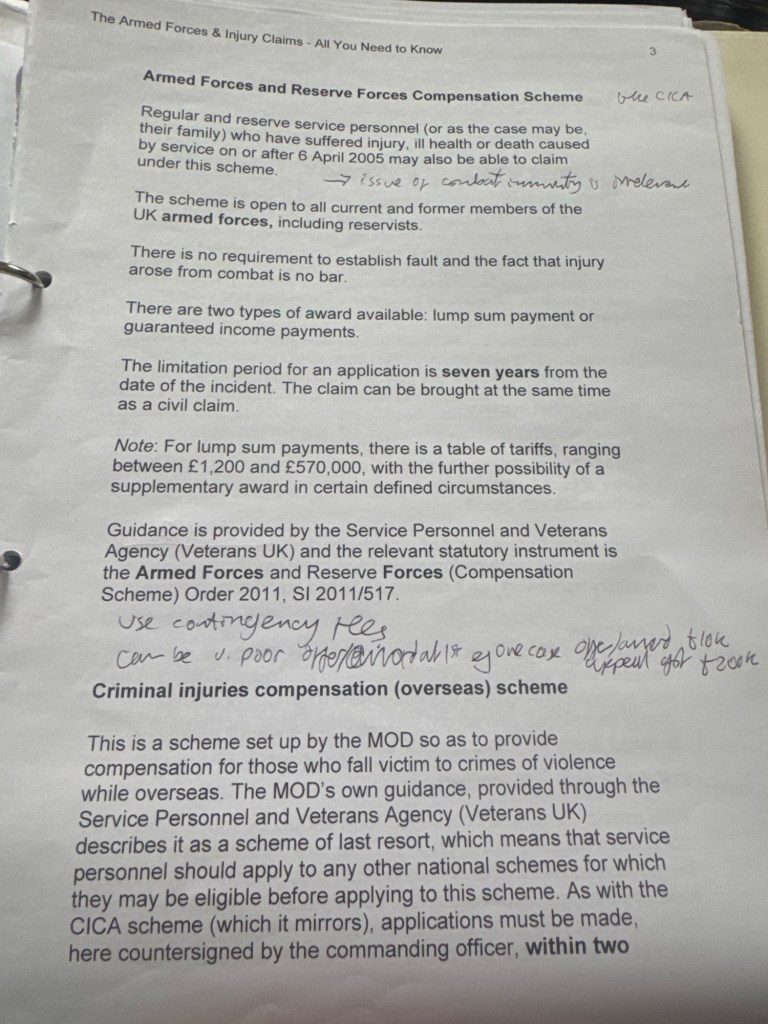 The Armed Forces & Injury Claims - All You Need to Know
3
Armed Forces and Reserve Forces Compensation Scheme
like CICA
Regular and reserve service personnel (or as the case may be,
their family) who have suffered injury, ill health or death caused
by service on or after 6 April 2005 may also be able to claim
under this scheme.
→ issue of combat immunity is irrelevant
The scheme is open to all current and former members of the
UK armed forces, including reservists.
There is no requirement to establish fault and the fact that injury
arose from combat is no bar.
There are two types of award available: lump sum payment or
guaranteed income payments.
The limitation period for an application is seven years from the
date of the incident. The claim can be brought at the same time
as a civil claim.
Note: For lump sum payments, there is a table of tariffs, ranging
between £1,200 and £570,000, with the further possibility of a
supplementary award in certain defined circumstances.
Guidance is provided by the Service Personnel and Veterans
Agency (Veterans UK) and the relevant statutory instrument is
the Armed Forces and Reserve Forces (Compensation
Scheme) Order 2011, SI 2011/517.
use contingency fees
can be v. poor offer/award at 1st eg one case £10k
appeal got £200k
Criminal injuries compensation (overseas) scheme
This is a scheme set up by the MOD so as to provide
compensation for those who fall victim to crimes of violence
while overseas. The MOD's own guidance, provided through the
Service Personnel and Veterans Agency (Veterans UK)
describes it as a scheme of last resort, which means that service
personnel should apply to any other national schemes for which
they may be eligible before applying to this scheme. As with the
CICA scheme (which it mirrors), applications must be made,
here countersigned by the commanding officer, within two